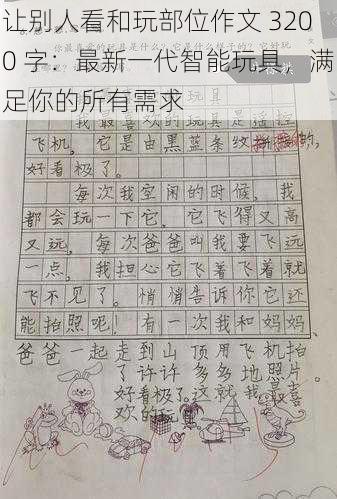 让别人看和玩部位作文 320
0 字：最新一代智能玩具，满
足你的所有需求
玩具
我最喜欢的玩具是遥控
飞机。它是由黑蓝条纹
好看极了。
每次我空闲的时候，我
都会玩一下它。它飞得又高
又远。每次爸爸叫我要飞远
一点。我担心它飞着飞着就
飞不见了。悄悄告诉你它还
能拍照呢！有一次我和妈妈、
爸爸一起走到山顶用飞机拍
了许许多多地照片。
好看极了。这就我最喜
欢的玩具。